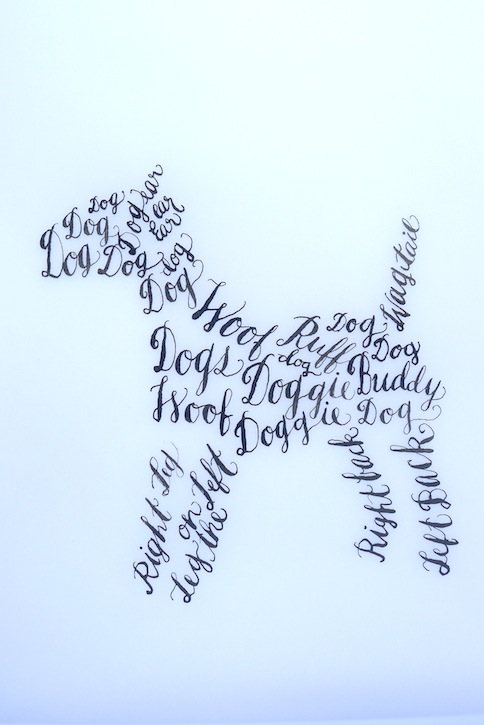 Dog
Dog
Dog
ear
ear
ear
Dog
Dog
dog
Dog
Woof
Ruff
Dog
Wagtail
Dogs
dog
Dog
Doggie
Buddy
Woof
Doggie
Dog
Right Leg
Leg on the Left
Right back
Left Back